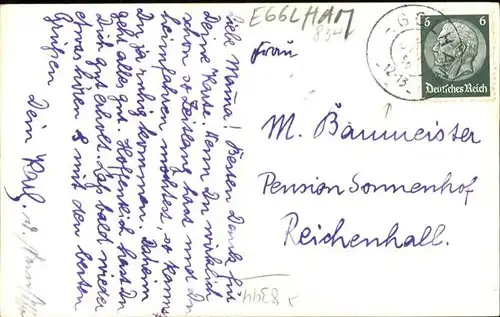 Liebe Mama! Besten Dank für
Deine Karte. Wenn Du wirklich
schon so Zeitlang hast und Du
heimfahren möchtest, so kannst
Du ja ruhig kommen. Daheim
geht alles gut. Hoffentlich hast Du
Dich gut erholt. Laß bald wieder
etwas hören & mit den besten
Grüßen
Dein Karl
EGGLHAM
Frau
6 6
Deutsches Reich
M. Baumeister
Pension Sonnenhof
Reichenhall.
8344